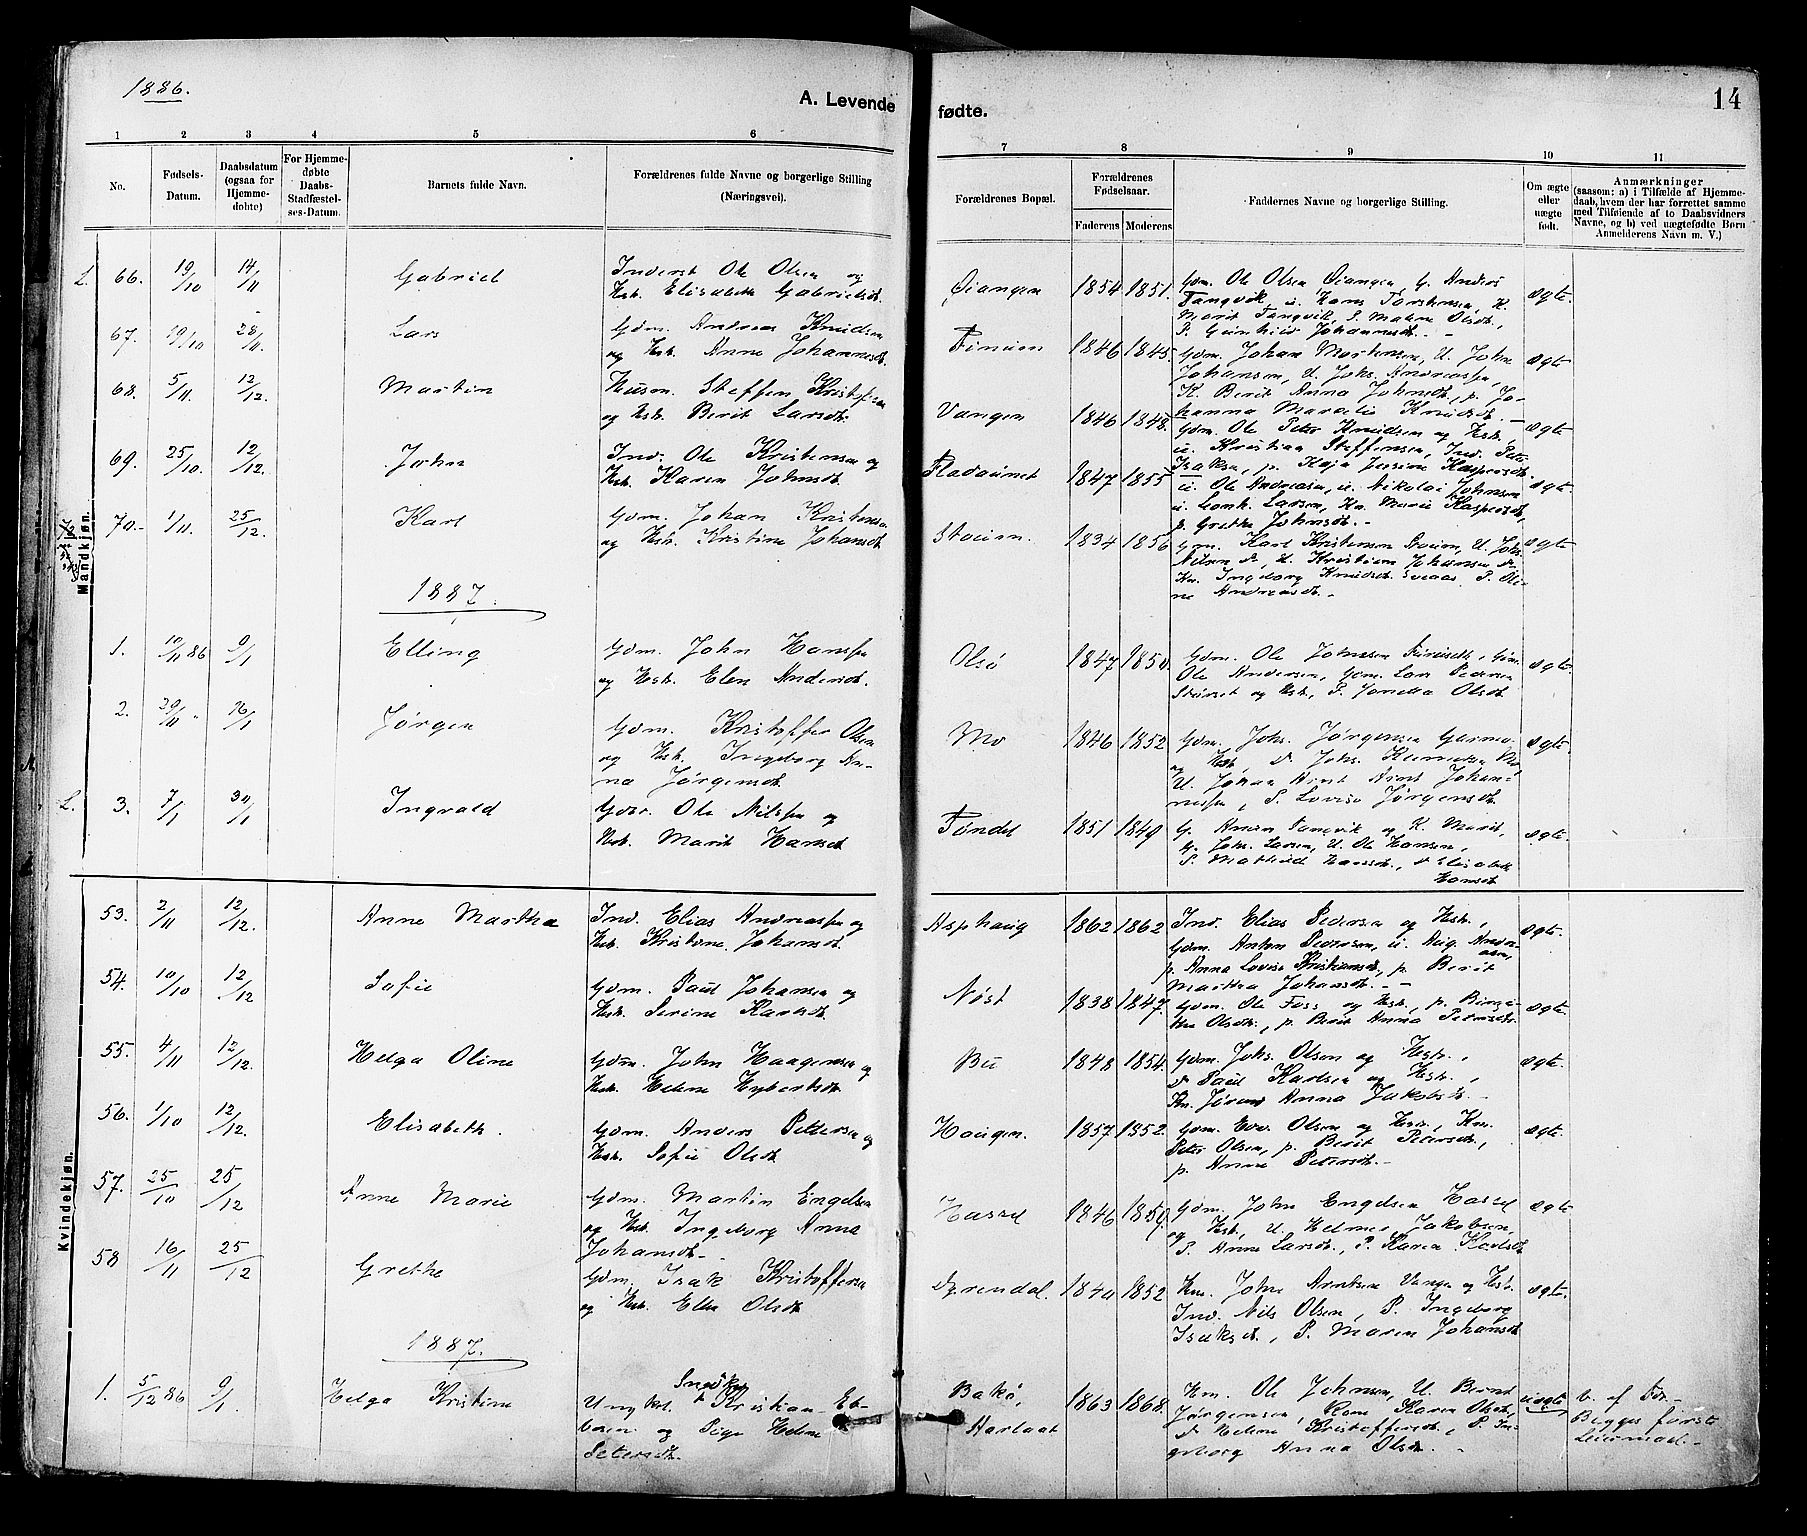 1886.
A. Levende
fødte.
14
1 2 3 4 5 6
7 8 9 10 11
No.
Fødsels-
Datum.
Daabsdatum
(ogsaa for
Hjemme-
døbte)
For Hjemme-
døbte
Daabs-
Stadfæstel-
ses-Datum.
Barnets fulde Navn.
Forældrenes fulde Navne og borgerlige Stilling
(Næringsvei).
Forældrenes Bopæl.
Forældrenes
Fødselsaar.
Faderens Moderens
Faddernes Navne og borgerlige Stilling.
Om ægte
eller
uægte
født.
Anmærkninger
(saasom: a) i Tilfælde af Hjemme-
daab, hvem der har forrettet samme
med Tilføiende af to Daabsvidners
Navne, og b) ved uægtefødte Børn
Anmelderens Navn m. V.)
Mandkjøn.
L. 66. 19/10 14/11 Gabriel
Inderst Ole Olsen og
Hstr. Elisabeth Gabrielsdt.
Øiangen 1854 1851.
Gdm. Ole Olsen Øiangen, G. Anders
Tangvik, U. Hans Torstensen, K.
Marit Tangvik, P. Malene Olsdt.,
P. Gunhild Johannesdt.
ægte.
67. 19/10 28/11 Lars
Gdm. Andreas Knudsen
og Hstr. Anne Johannesdt.
1846 1845.
Gdm. Johan Mortensen, U. John
Johansen, U. Johs. Andreassen,
K. Berit Anna Johnsdt., p. Jo-
hanna Marcelie Knudsdt.
ægte
68. 5/11. 12/12. Martin
Husm. Steffen Kristofersen
og Hstr. Berit Larsdt.
Vangen 1846 1848.
Gdm. Ole Peter Knudsen og Hstr.,
u. Kristian Steffensen, Ind. Peter
Isaksen, p. Kaja Jensine Kaspersdt.
ægte
69. 25/10. 12/12. John
Ind. Ole Kristensen og
Hstr. Karen Johnsdt.
Fladaunet 1847 1855
u. Ole Andreasen, u. Nikolai Johnsen
u. Larsen, Kn. Marie Kaspersdt.,
p. Grethe Johnsdt.
ægte.
70. 1/11. 25/12. Karl
Gdm. Johan Kristensen
og Hstr. Kristine Johansdt.
Stoien. 1834 1856
Gdm. Karl Kristensen Stoien, U. Johs.
Nilsen, U. Kristian Johansen
Kn. Ingeborg Knudsdt. P. Oli-
ne Andreasdt.
ægte
1887.
1. 10/11 86 9/1 Elling
Gdm. John Hanssen
og Hstr. Elen Andersdt.
Olsø 1847 1850
Gdm. Ole Johnsen, Gdm.
Ole Andersen, Gdm. Lars Pedersen
og Hstr., P. Jonetta Olsdt.
ægte.
2. 29/11 " 16/1 Jørgen
Gdm. Kristoffer Olsen
og Hstr. Ingeborg An-
na Jørgensdt.
Mo 1846 1852
Gdm. Johs. Jørgensen
og Hstr. Johs.
U. Johan Arnt Johan-
nessen, P. Lovise Jørgensdt.
ægte.
L. 3. 7/1 30/1 Ingvald
Gdbr. Ole Nilssen og
Hstr. Marit Hansdt.
Tøndel 1851 1849
G. Anders Tangvik og K. Marit,
G. Johs. Larsen, U. Ole Hansen,
P. Mathild Hansdt., Elisabeth
Hansdt.
ægte.
Kvindekjøn.
53. 2/11 12/12. Anne Martha
Ind. Elias Andreassen og
Hstr. Kristine Johansdt.
Asphaug 1862 1862
Ind. Elias Pedersen og Hstr.,
Gdm. Anton Pedersen, u. Aug. Andre-
asen,
p. Anna Lovise Kristiansdt., p. Berit
Martha Johansdt.
ægte.
54. 10/10 12/12 Sofie
Gdm. Paul Johansen og
Hstr. Serine Karlsdt.
Nøst 1838 1847.
Gdm. Ole Foss og Hstr., p. Birgi-
the Olsdt., p. Berit Anna Petersdt.
ægte.
55. 4/11 12/12. Helga Oline
Gdm. John Haagensen og
Hstr. Helene Hybertsdt.
Bu 1848 1854.
Gdm. Johs. Olsen og Hstr.,
Paul Karlsen og Hstr.,
Kn. Anna Jakobsdt.
ægte.
56. 1/10 12/12. Elisabeth.
Gdm. Anders Pettersen og
Hstr. Sofie Olsdt.
Haugen. 1857 1852.
Gdm. Olsen og Hstr., Kn.
Peter Olsen, p. Berit Petersdt.,
p. Anne Petersdt.
ægte.
57. 25/10 25/12 Anne Marie
Gdm. Martin Engelsen
og Hstr. Ingeborg Anna
Johansdt.
Hassel 1846 1859
Gdm. John Engelsen Hassel
og Hstr., U. Helmer Jakobsen,
P. Anne Larsdt., P. Karen Karlsdt
ægte
58 16/11 25/12 Grethe
Gdm. Isak Kristoffersen
og Hstr. Ellen Olsdt.
Dyrendal. 1840 1852
Hm. John Arntsen Vangen og Hstr.
Ind. Nils Olsen, P. Ingeborg
Isaksdt., P. Maren Johansdt
ægte.
1887.
1. 5/12 86 9/1 Helga Kristine
Ungkl. Kristian Et-
bersen og Pige Helene
Petersdt.
Bakø,
Aarlaat
1863 1868.
Hm. Ole Johnsen, U. Bernt
Jørgensen, Kone Karen Olsdt.,
Helene Kristoffersdt., P. In-
geborg Anna Olsdt.
uægte
v. af For.
Begges første
Leiermaal.